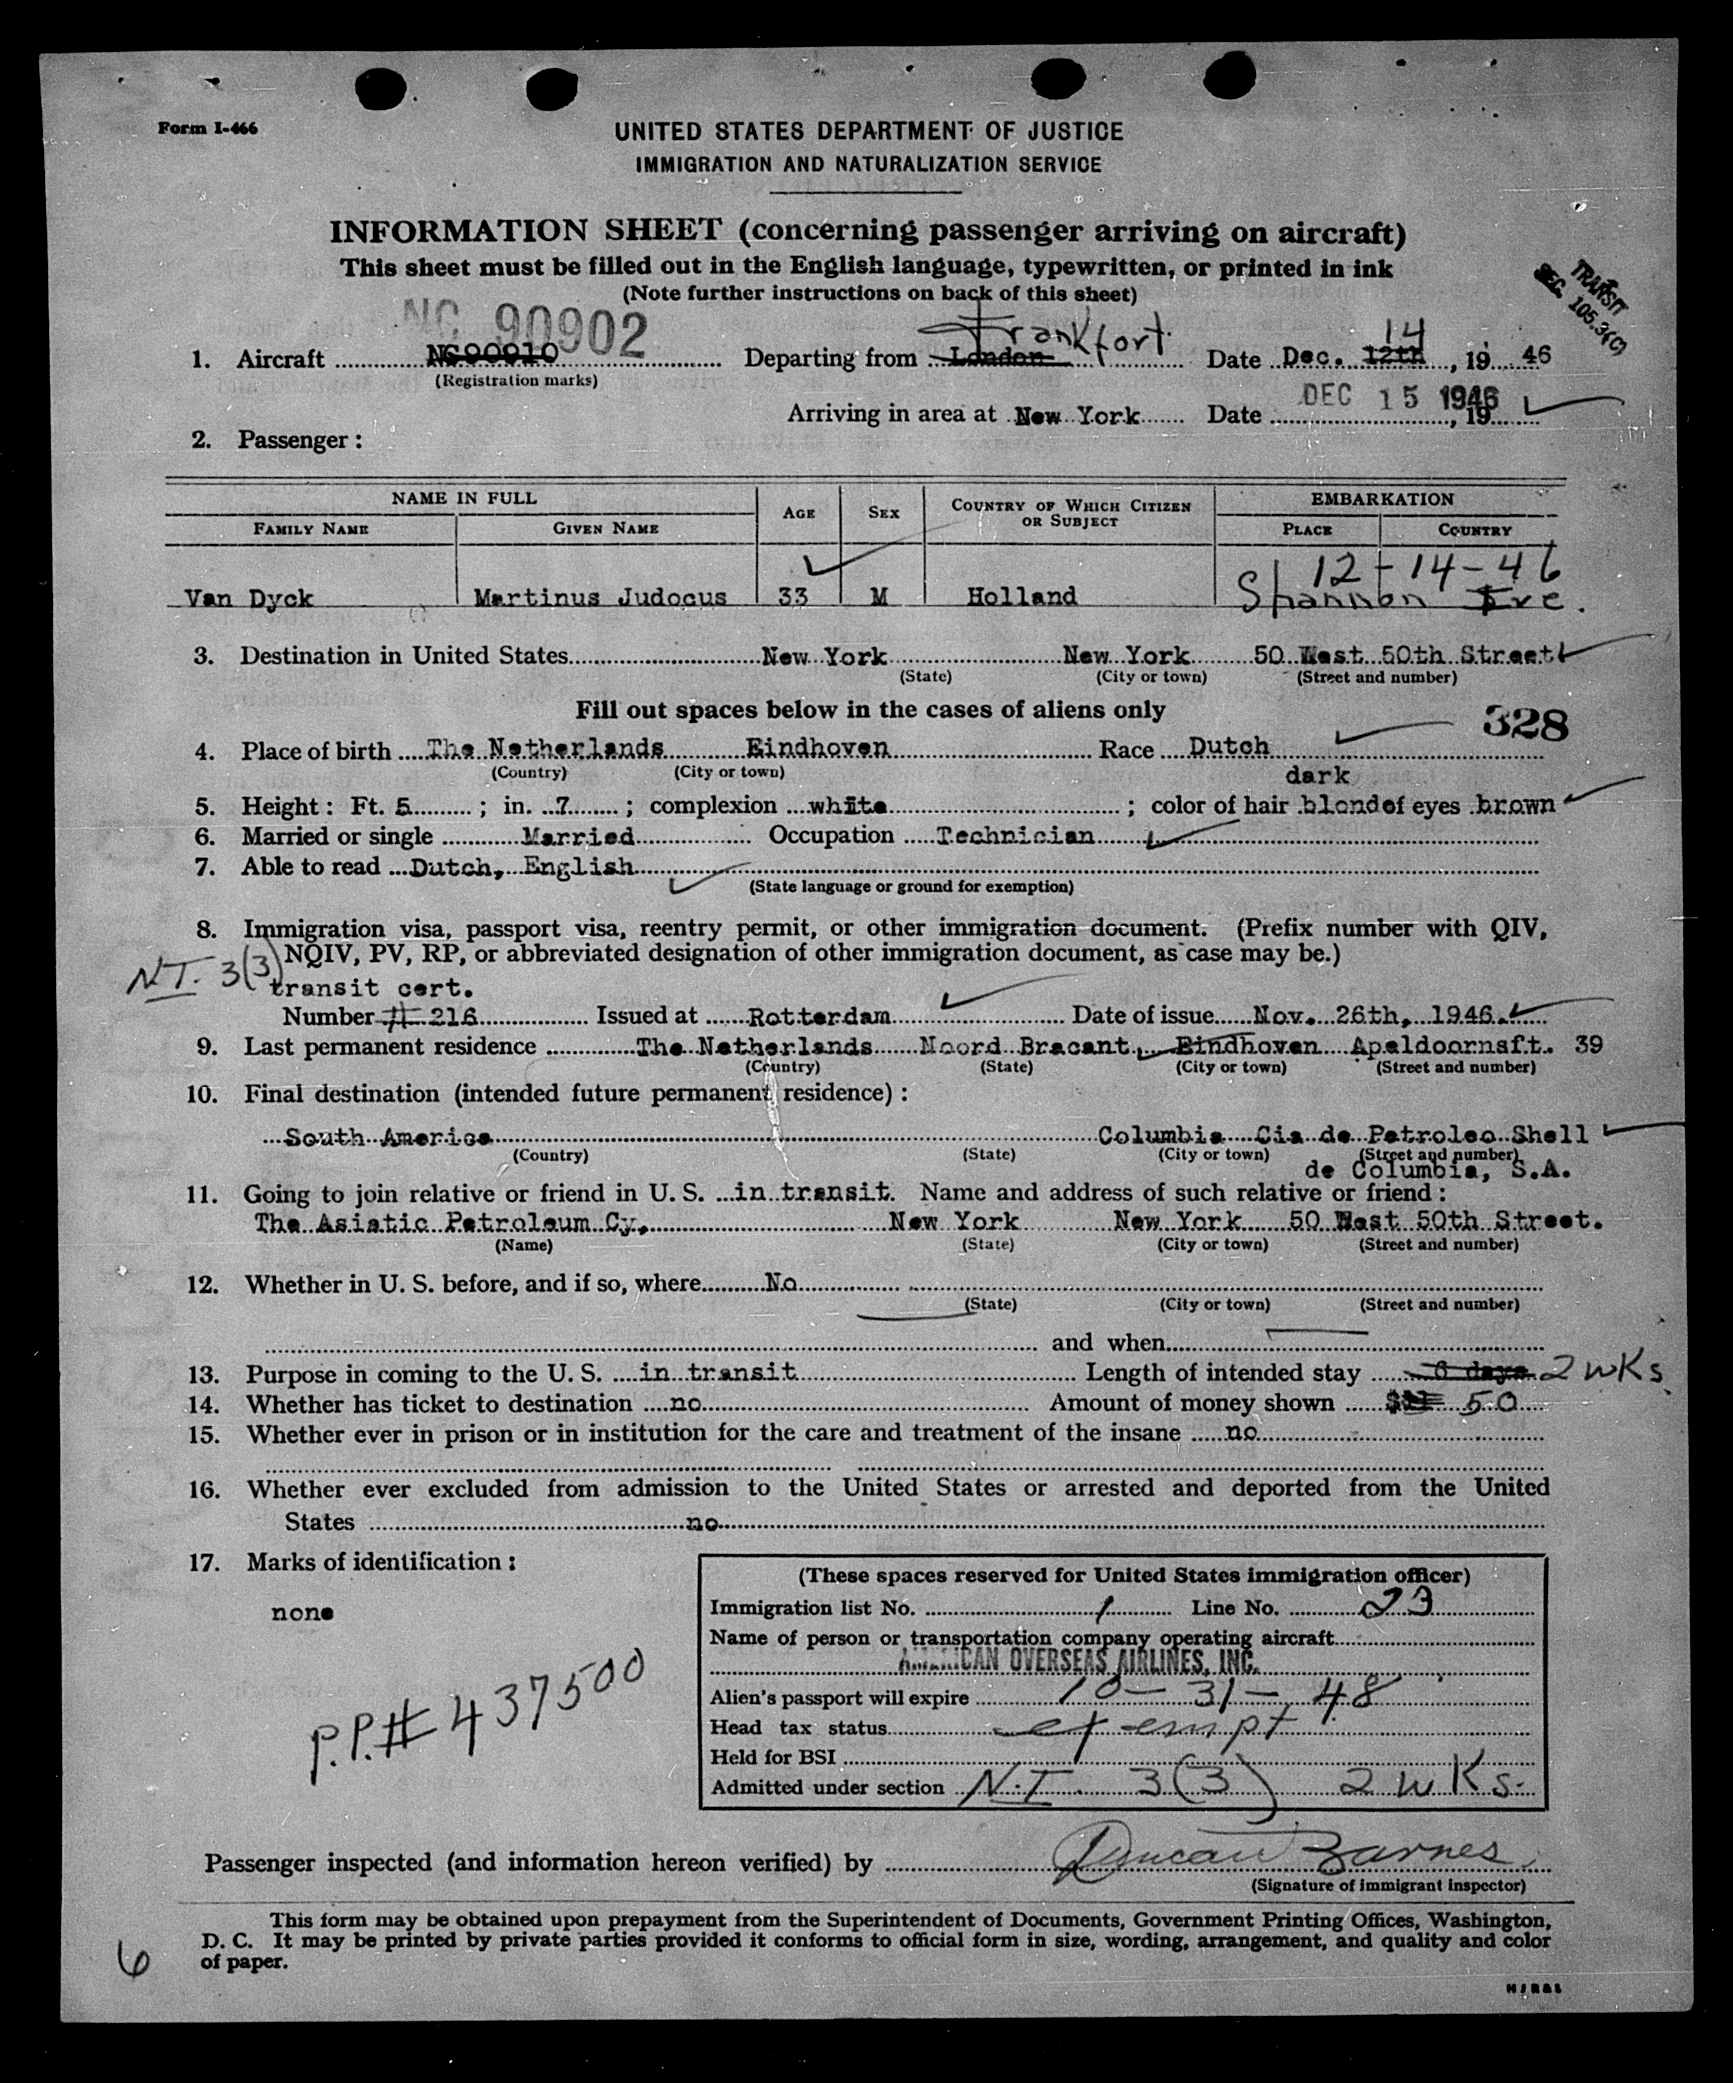 Form I-466
UNITED STATES DEPARTMENT OF JUSTICE
IMMIGRATION AND NATURALIZATION SERVICE
INFORMATION SHEET (concerning passenger arriving on aircraft)
This sheet must be filled out in the English language, typewritten, or printed in ink
(Note further instructions on back of this sheet)
TRANSIT
SEC. 105.3(C)
NC 90902 Frankfort 14
1. Aircraft NC90910 Departing from London Date Dec. 12th, 19 46
(Registration marks)
Arriving in area at New York Date DEC 15 1946, 19
2. Passenger:
NAME IN FULL AGE SEX COUNTRY OF WHICH CITIZEN OR SUBJECT EMBARKATION
FAMILY NAME GIVEN NAME PLACE COUNTRY
12-14-46
Van Dyck Martinus Judocus 33 M Holland Shannon Ire.
3. Destination in United States New York New York 50 West 50th Street
(State) (City or town) (Street and number)
Fill out spaces below in the cases of aliens only
328
4. Place of birth The Netherlands Eindhoven Race Dutch
(Country) (City or town) dark
5. Height: Ft. 5; in. 7; complexion white; color of hair blond of eyes brown
6. Married or single Married Occupation Technician
7. Able to read Dutch, English
(State language or ground for exemption)
8. Immigration visa, passport visa, reentry permit, or other immigration document. (Prefix number with QIV,
NQIV, PV, RP, or abbreviated designation of other immigration document, as case may be.)
N.I. 3(3)
transit cert.
Number # 216 Issued at Rotterdam Date of issue Nov. 26th, 1946.
9. Last permanent residence The Netherlands Noord Bracant, Eindhoven Apeldoornsft. 39
(Country) (State) (City or town) (Street and number)
10. Final destination (intended future permanent residence):
South America Columbia Cia de Petroleo Shell
(Country) (State) (City or town) (Street and number)
de Columbia, S.A.
11. Going to join relative or friend in U. S. in transit. Name and address of such relative or friend:
The Asiatic Petroleum Cy, New York New York 50 West 50th Street.
(Name) (State) (City or town) (Street and number)
12. Whether in U. S. before, and if so, where No
(State) (City or town) (Street and number)
and when
13. Purpose in coming to the U. S. in transit Length of intended stay 6 days 2 wKs.
14. Whether has ticket to destination no Amount of money shown $ 50
15. Whether ever in prison or in institution for the care and treatment of the insane no
16. Whether ever excluded from admission to the United States or arrested and deported from the United
States no
17. Marks of identification:
none
P.P.# 437500
(These spaces reserved for United States immigration officer)
Immigration list No. 1 Line No. 23
Name of person or transportation company operating aircraft
AMERICAN OVERSEAS AIRLINES, INC.
Alien's passport will expire 10-31-48
Head tax status exempt
Held for BSI
Admitted under section N.I. 3(3) 2 wKs.
Passenger inspected (and information hereon verified) by Duncan Barnes
(Signature of immigrant inspector)
This form may be obtained upon prepayment from the Superintendent of Documents, Government Printing Offices, Washington,
D. C. It may be printed by private parties provided it conforms to official form in size, wording, arrangement, and quality and color
of paper.
6